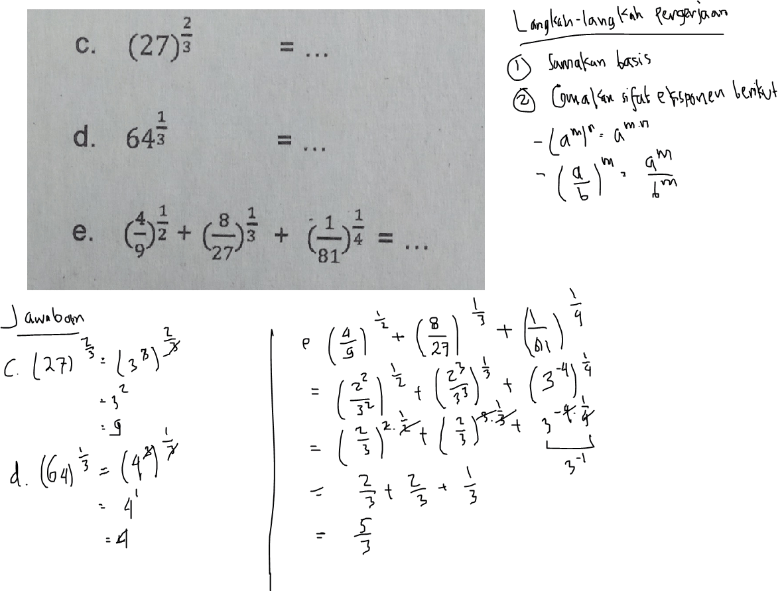 c. (27)^(2/3) = ...
d. 64^(1/3) = ...
e. (4/9)^(1/2) + (8/27)^(1/3) + (1/81)^(1/4) = ...
Langkah-langkah pengerjaan
① Samakan basis
② Gunakan sifat eksponen berikut
- (a^m)^n = a^(m.n)
- (a/b)^m = a^m/b^m
Jawaban
c. (27)^(2/3) = (3^3)^(2/3)
= 3^2
= 9
d. (64)^(1/3) = (4^3)^(1/3)
= 4^1
= 4
e (4/9)^(1/2) + (8/27)^(1/3) + (1/81)^(1/4)
= (2^2/3^2)^(1/2) + (2^3/3^3)^(1/3) + (3^-4)^(1/4)
= (2/3)^(2.1/2) + (2/3)^(3.1/3) + 3^(-4.1/4)
3^-1
= 2/3 + 2/3 + 1/3
= 5/3